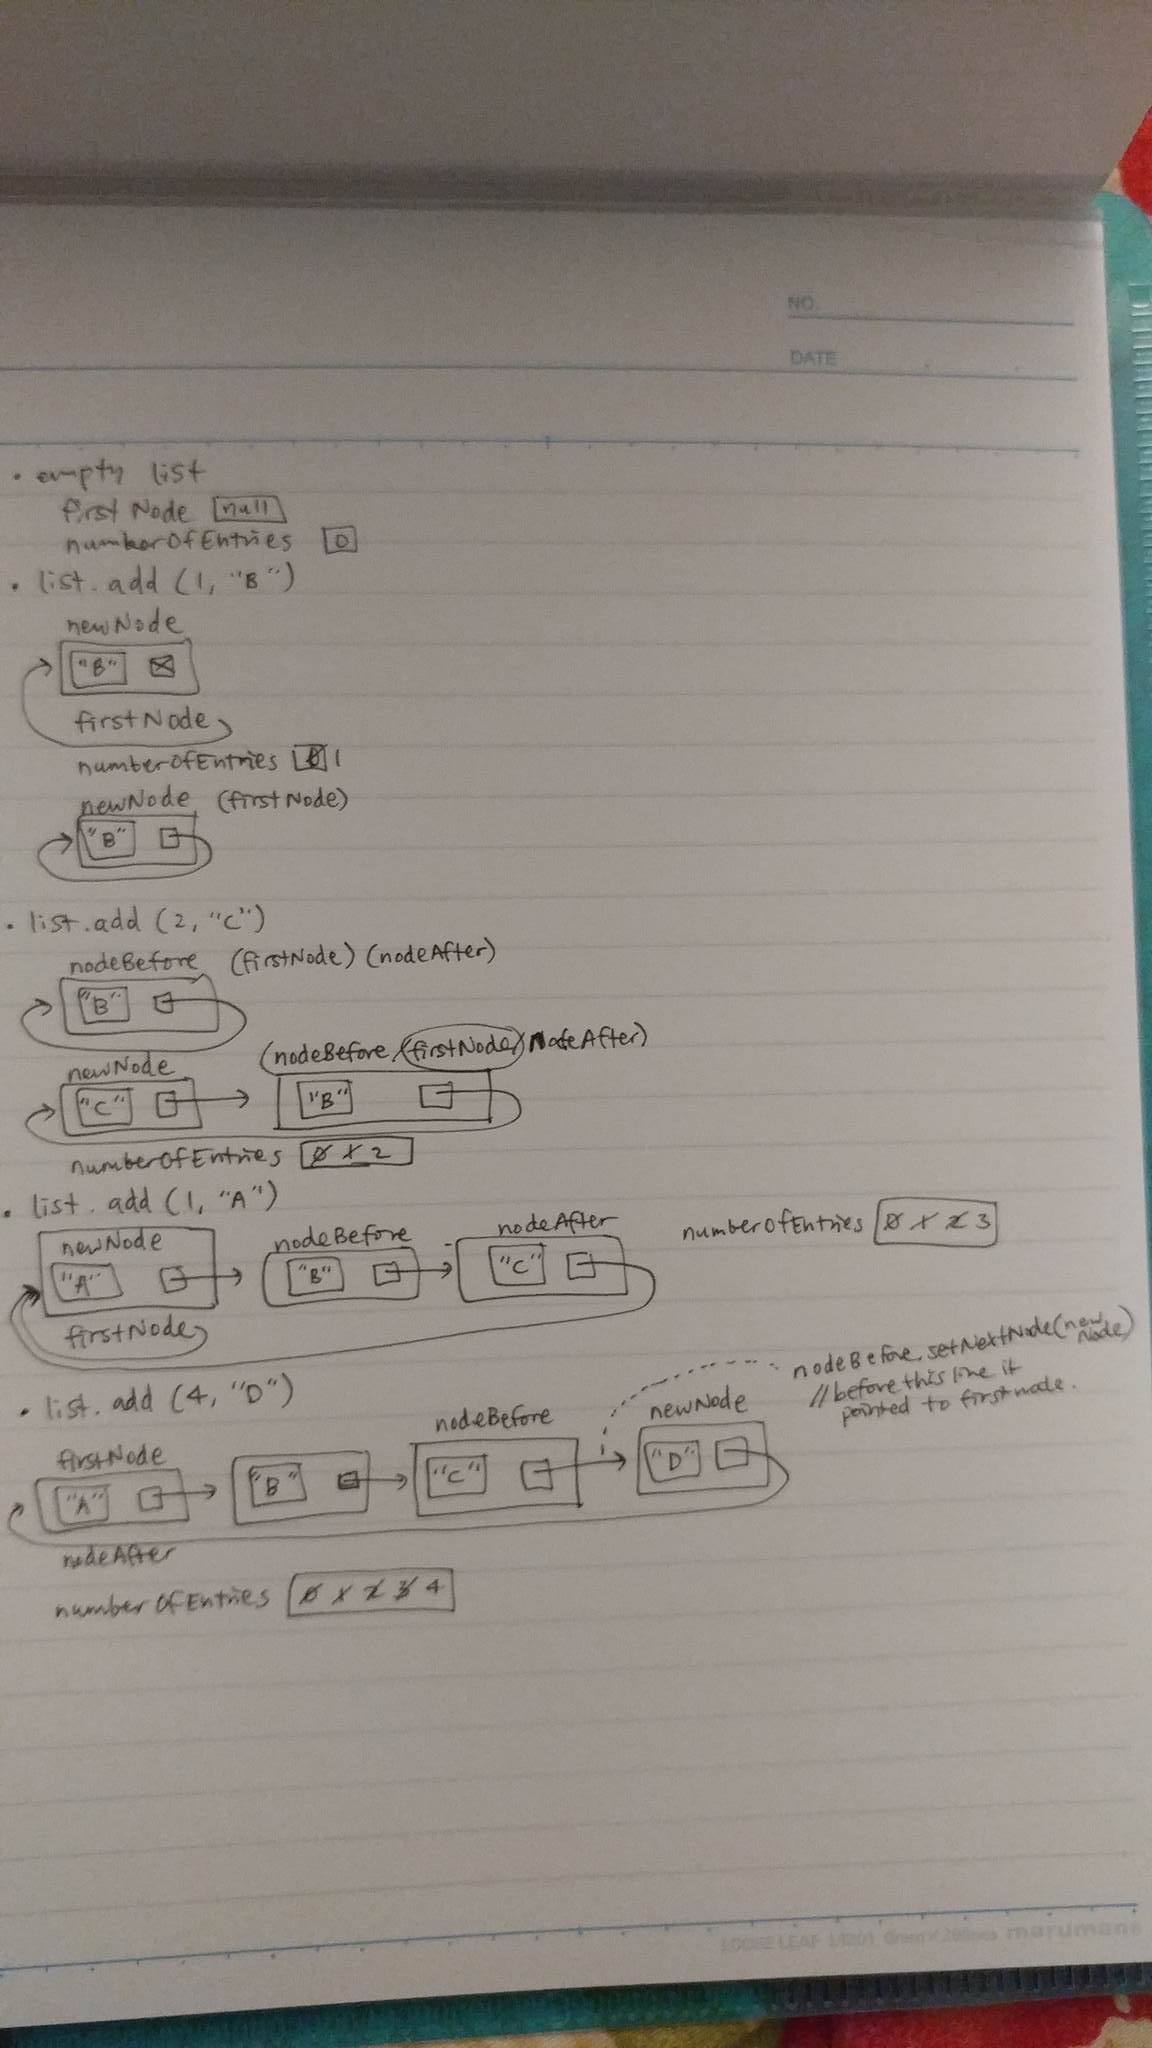 NO.
DATE
• empty list
firstNode null
numberOfEntries 0
• list.add (1, "B")
newNode
"B"
firstNode
numberOfEntries 0 1
newNode (firstNode)
"B"
• list.add (2, "C")
nodeBefore (firstNode) (nodeAfter)
"B"
(nodeBefore, (firstNode) NodeAfter)
newNode
"C" "B"
numberOfEntries 0 1 2
• list.add (1, "A")
newNode nodeBefore nodeAfter numberOfEntries 0 1 2 3
"A" "B" "C"
firstNode
nodeBefore.setNextNode(new Node)
// before this line it
pointed to firstnode.
• list.add (4, "D")
firstNode nodeBefore newNode
"A" "B" "C" "D"
nodeAfter
numberOfEntries 0 1 2 3 4
LOOSE LEAF marumans